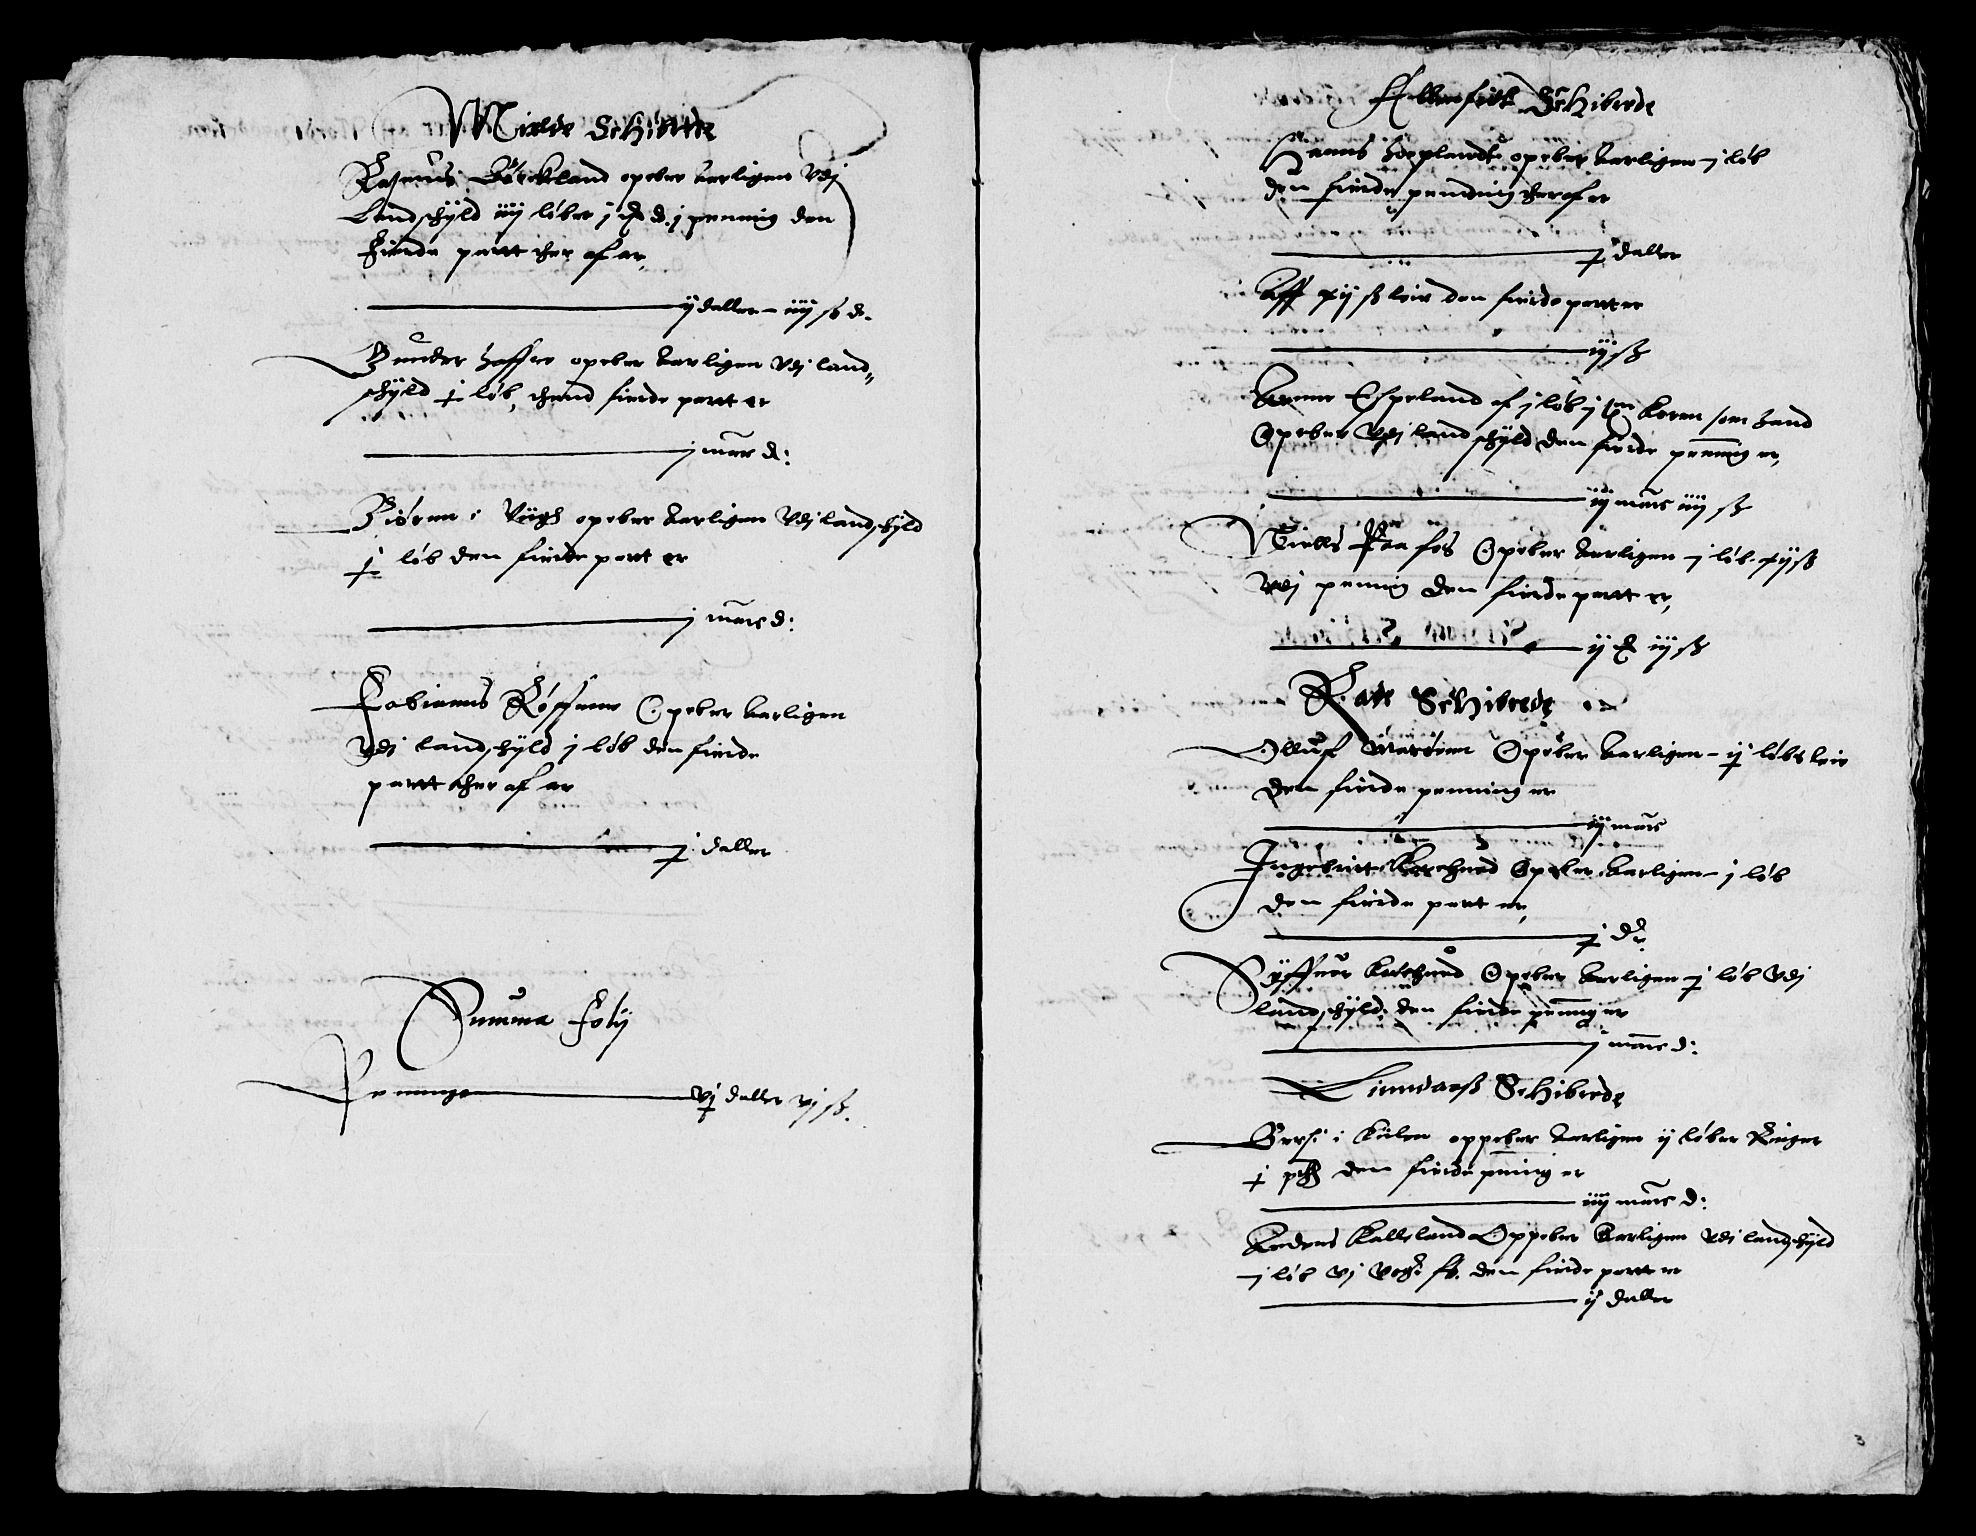 Mielde Schibrede
Rasmus Birckeland opeber aarligen vdj
Landschyld iiij løber j ℔ d. j penning den
Fierde partt ther af er,
ij daller – iiij ß d.
Gunder hoffre opeber aarligen vdj land„
schyld j løb, thend fierde part er
j marc d:
Biørnn i opeber aarligen vdj landschyld
j løb den fierde part er
j marc d:
Fabianus Opeber aarligen
vdj landschyld j løb den fierde
partt ther af er
j daller
Summa Folij
Peninge vj daller vj ß.
Schibrede
Hanns Hoplandt opeber aarligen – j løb
den fierde pending ther af er
j daller
Aff xij ß leie den fierde part er
iij ß
Arnne Espeland af j løb j koren som hand
Opeber vdj landschyld den fierde penning er,
iij marc iiij ß
Niells Paa fos Opeber aarligen – j løb xij ß
vdj penning den fierde partt er,
ij ℔ iij ß
Rade Schibrede
Olluf Opeber aarligen – ij løbs leie
den fierde penning er
iij marc
Ingebritt Opeber aarligen – j løb
den fierde part er,
j dr.
Opeber aarligen – j løb vdj
landschyld: den fierde penning er
j marc d:
Linndaaß Schibrede
i oppeber aarligen ij løber
j den fierde pening er
iiij marc d:
Anders Kalleland Oppeber aarligen vdj landschyld
– j løb vj den fierde part er
ij daller
3